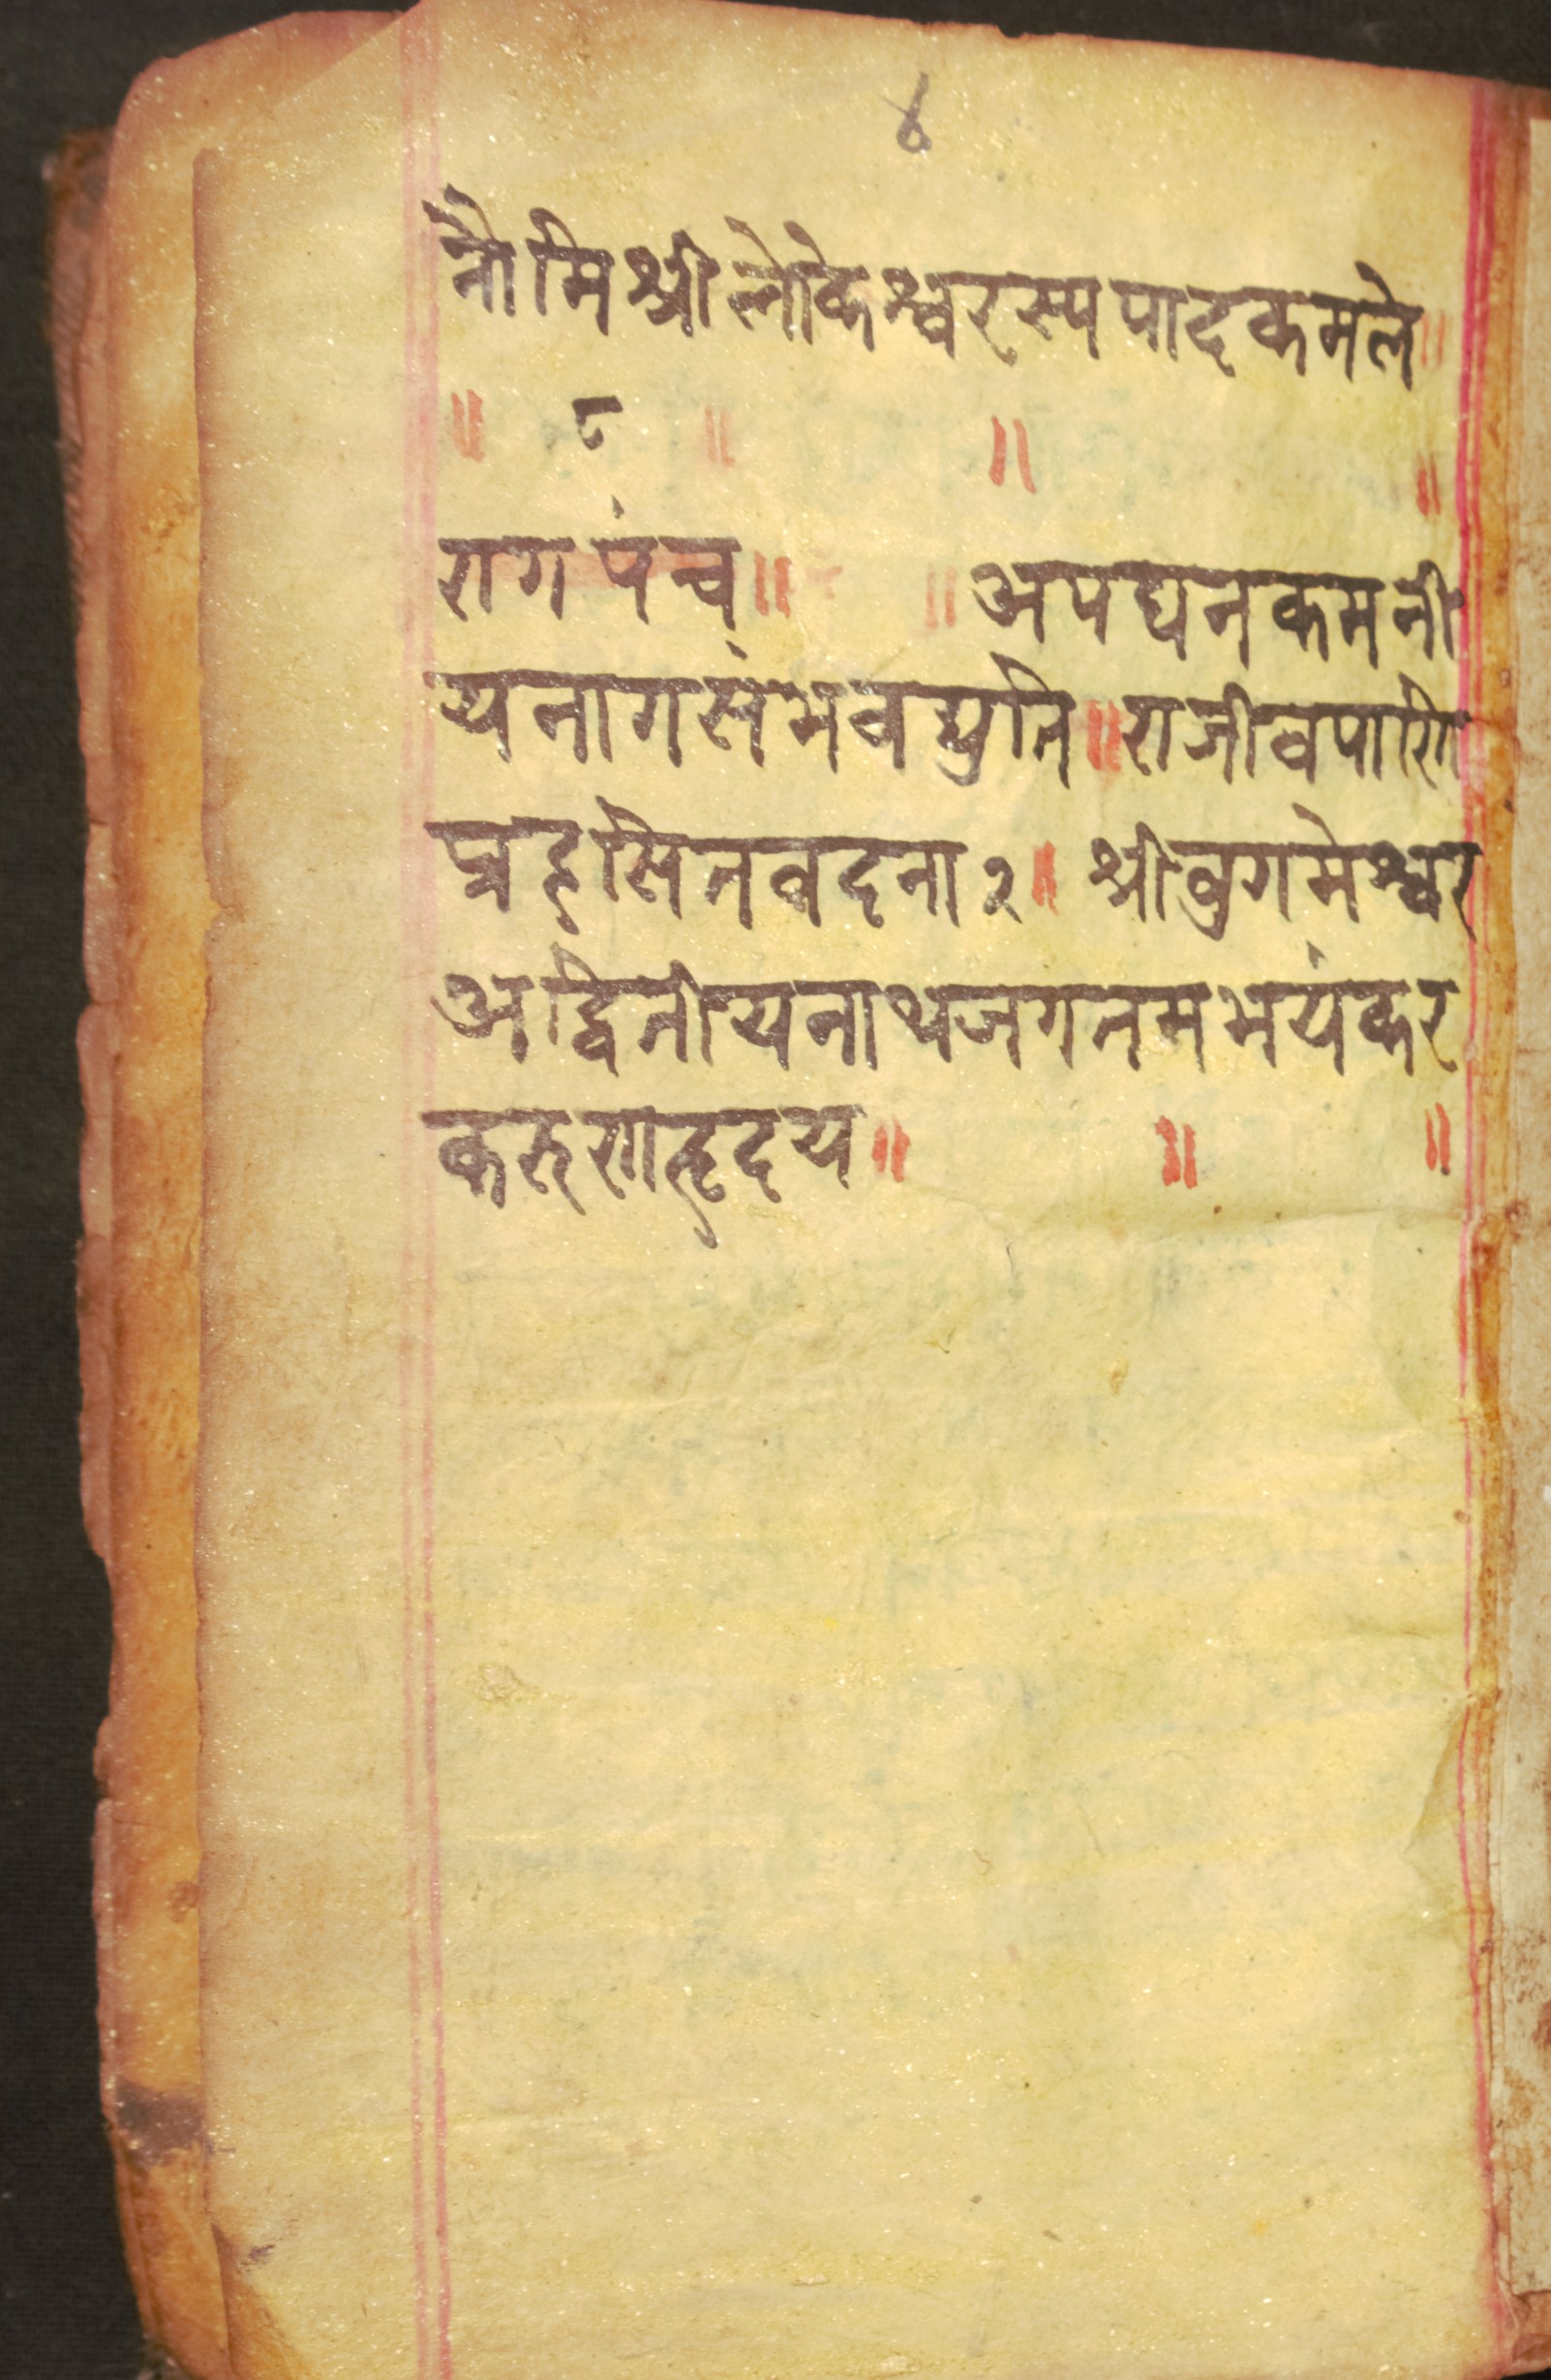 ४
नौमिश्रीलोकेश्वरस्यपादकमले॥
॥ ८ ॥ ॥ ॥
रागपंच॥ ॥अपघनकमनी
यनागसंभवद्युति॥राजीवपाणि
प्रहसितवदना२॥ श्रीवुगमेश्वर
अद्वितीयनाथजगतमभयंकर
करुणाहृदय॥ ॥ ॥